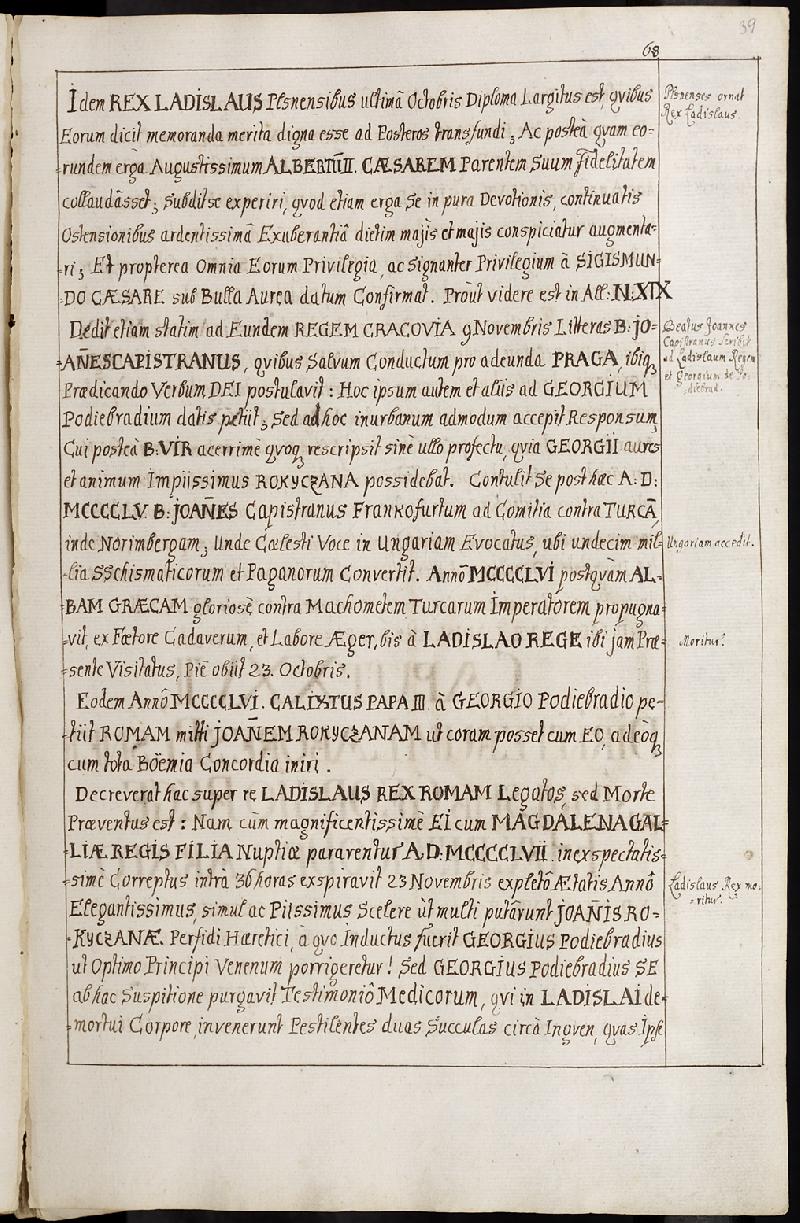 39
68
Idem REX LADISLAUS Plsnensibus ultimâ Octobris Diploma Largitus est, qvibus
Eorum dicit memoranda merita digna esse ad Posteros transfundi; Ac posteà qvam eo-
-rundem erga Augustissimum ALBERTŪ II. CÆSAREM Parentem Suum fidelitatem
collaudâsset; Subdit se experiri, qvod etiam erga Se in pura Devotionis, continuatis
Ostensionibus ardentissimâ Exuberantiâ dietim majis et majis conspiciatur augmenta-
-ri; Et propterea Omnia Eorum Privilegia, ac Signanter Privilegium à SIGISMUN-
DO CÆSARE sub Bulla Aurea datum Confirmat. Proùt videre est in All: N: XIX
Plsnenses ornat
Rex Ladislaus.
Dedit etiam statim ad Eundem REGEM CRACOVIA 9 Novembris Litteras B: JO-
-AÑES CAPISTRANUS, qvibus Salvum Conductum pro adeunda PRAGA, ibiq3
Prædicando Verbum DEI postulavit: Hoc ipsum autem et aliis ad GEORGIUM
Podiebradium datis petiit; Sed ad hoc inurbanum admodum accepit Responsum,
Cui posteà B: VIR acerrimè qvoq3 rescripsit sinè ullo profectu, qvia GEORGII aures
et animum Impiissimus ROKYCZANA possidebat. Contulit Se post hæc A: D:
MCCCCLV. B: JOAÑES Capistranus Frankofurtum ad Comitia contra TURCĀ,
inde Norimbergam; Unde Cœlesti Voce in Ungariam Evocatus, ubi undecim mil-
-lia SSchismaticorum et Paganorum Convertit. Annô MCCCCLVI postqvàm AL-
BAM GRÆCAM gloriosè contra Machometem Turcarum Imperatorem propugna-
-vit, ex Fœtore Cadaverum, et Labore Æger, bis à LADISLAO REGE ibi jam Præ-
-sente Visitatus, Piè obiit 23. Octobris.
Beatus Joannes
Capistranus scribit
ad Ladislaum Regem
et Georgium de Po-
diebrad.
Ungariam accedit.
Moritur.
Eodem Annô MCCCCLVI. CALIXTUS PAPA III à GEORGIO Podiebradio pe-
-tiit ROMAM mitti JOAÑEM ROKYCZANAM ut coram posset cum EO, adeòq3
cum tota Böemia Concordia iniri.
Decreverat hac super re LADISLAUS REX ROMAM Legatos, sed Morte
Præventus est: Nam cùm magnificentissimè EI cum MAGDALENA GAL-
LIÆ REGIS FILIA Nuptiæ pararentur A: D: MCCCCLVII. inexspectatis-
-simè Correptus intrà 36 horas exspiravit 23 Novembris expletô Ætatis Annô
Elegantissimus, simul ac Piissimus Scelere ùt multi putârunt JOAÑIS RO-
-KYCZANÆ. Perfidi Hæretici, à qvo Inductus fuerit GEORGIUS Podiebradius
ut Optimo Principi Venenum porrigeretur! Sed GEORGIUS Podiebradius SE
ab hac Suspitione purgavit Testimoniô Medicorum, qvi in LADISLAI de-
-mortui Corpore, invenerunt Pestilentes duas Succulas circà Ingven, qvas Ipse
Ladislaus Rex mo-
-ritur.